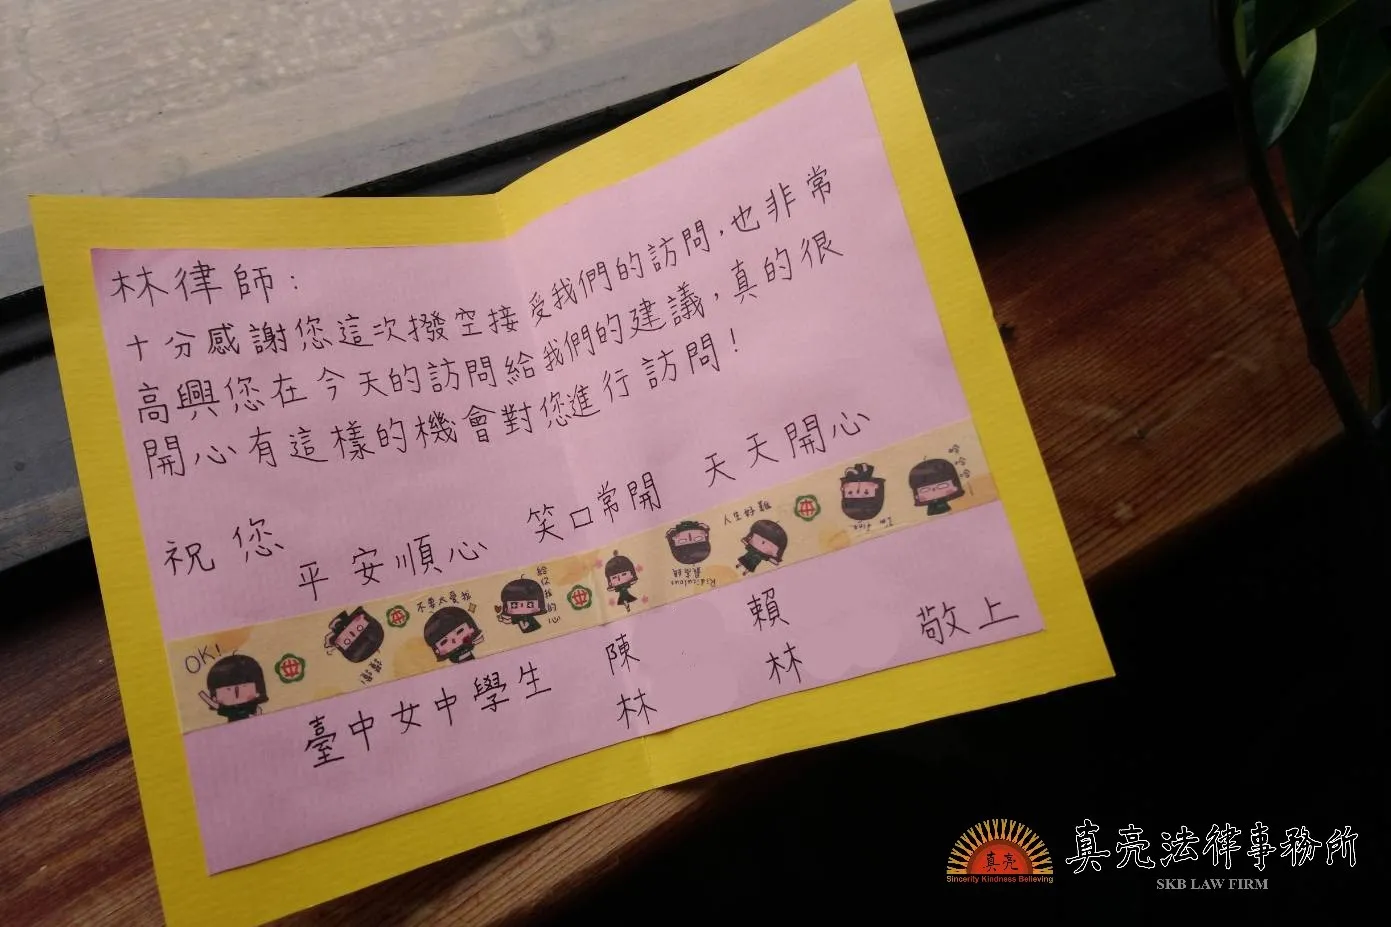 林律師:
十分感謝您這次撥空接受我們的訪問,也非常
高興您在今天的訪問給我們的建議,真的很
開心有這樣的機會對您進行訪問!
祝您
平安順心 笑口常開 天天開心
OK!
不要太愛我
給你我的心
Ridiculous
I'm fine
哈哈哈
臺中女中學生 陳 賴
林 林 敬上
真亮
Sincerity Kindness Believing
真亮法律事務所
SKB LAW FIRM